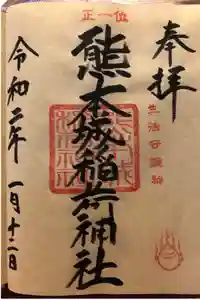 奉拝
生活守護神
正一位
熊本城稲荷神社
令和二年 一月十二日